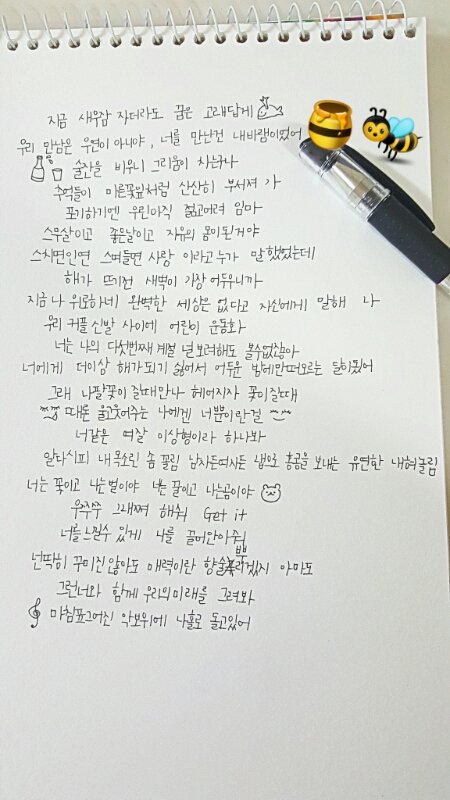 지금 새우잠 자더라도 꿈은 고래답게
우리 만남은 우연이 아니야, 너를 만난건 내바램이었어
술잔을 비우니 그리움이 차는구나
추억들이 마른꽃잎처럼 산산히 부서져 가
포기하기엔 우린아직 젊고어려 임마
스무살이고 좋은날이고 자유의 몸이된거야
스치면인연 스며들면 사랑 이라고누가 말했었는데
해가 뜨기전 새벽이 가장어두우니까
지금 나 위로하네 완벽한 세상은 없다고 자신에게 말해 나
우리 커플신발 사이에 어린이 운동화
너는 나의 다섯번째 계절 널보려해도 볼수없잖아
너에게 더이상 해가되기 싫어서 어두운 밤에만떠오르는 달이됐어
그래 나팔꽃이 질때만나 헤어지자 꽃이질때
때론 울고웃어주는 나에겐 너뿐이란걸
너같은 여잘 이상형이라 하나봐
알타시피 내 목소린 솜 끌림 남자든여자든 냅으로 홍콩을 보내는 유연한 내혀놀림
너는 꽃이고 나는벌이야 너는 꿀이고 나는곰이야
우쭈쭈 그래쪄 해줘 Get it
너를느낄수 있게 나를 끌어안아줘
넌딱히 꾸미진않아도 매력이란 향술뿌리겠지 아마도
그런너와 함께 우리의미래를 그려봐
마침표그어진 악보위에 나홀로 돌고있어